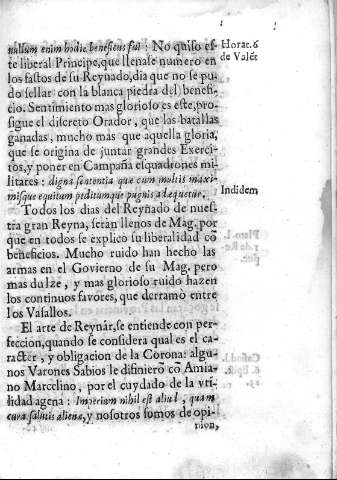 nullum enim hodie benefiens fui : No quiso es-
te liberal Principe, que llenase numero en
los fastos de su Reynado, dia que no se pu-
do sellar con la blanca piedra del benefi-
cio. Sentimiento mas glorioso es este, pro-
sigue el discreto Orador, que las batallas
ganadas, mucho mas que aquella gloria,
que se origina de juntar grandes Exerci-
tos, y poner en Campaña esquadrones mi-
litares : digna sententia que cum multis maxi-
misque equitum peditumque pugnis adæquetur.
Todos los dias del Reynado de nues-
tra gran Reyna, serán llenos de Mag. por
que en todos se explicó su liberalidad cõ
beneficios. Mucho ruido han hecho las
armas en el Govierno de su Mag. pero
mas dulze, y mas glorioso ruido hazen
los continuos favores, que derramò entre
los Vasallos.
El arte de Reynár, se entiende con per-
feccion, quando se considera qual es el ca-
racter, y obligacion de la Corona: algu-
nos Varones Sabios le difinierõ cõ Amia-
no Marcelino, por el cuydado de la vti-
lidad agena : Imperium nihil est aliud, quam
cura salutis alienæ, y nosotros somos de opi-
nion,
Horat. 6
de Valẽt
Indidem